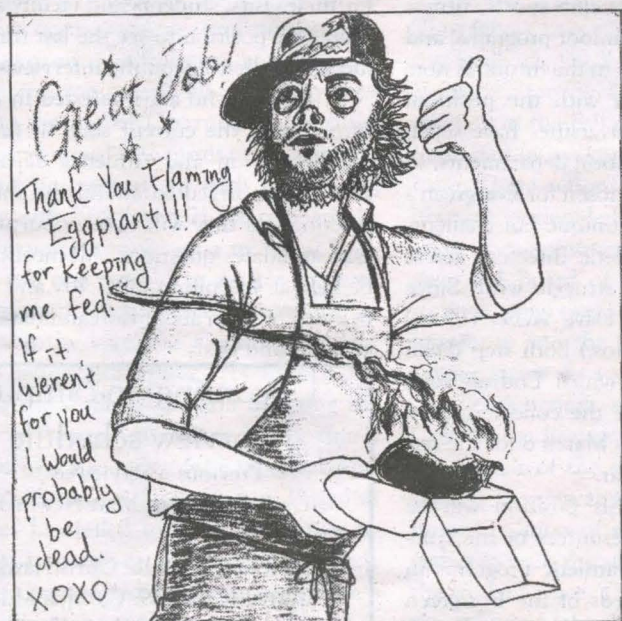 Thank You Flaming
Eggplant!!
for keeping
me fed
If it
werent
for you
I would
probably
be
dead.
XOXO